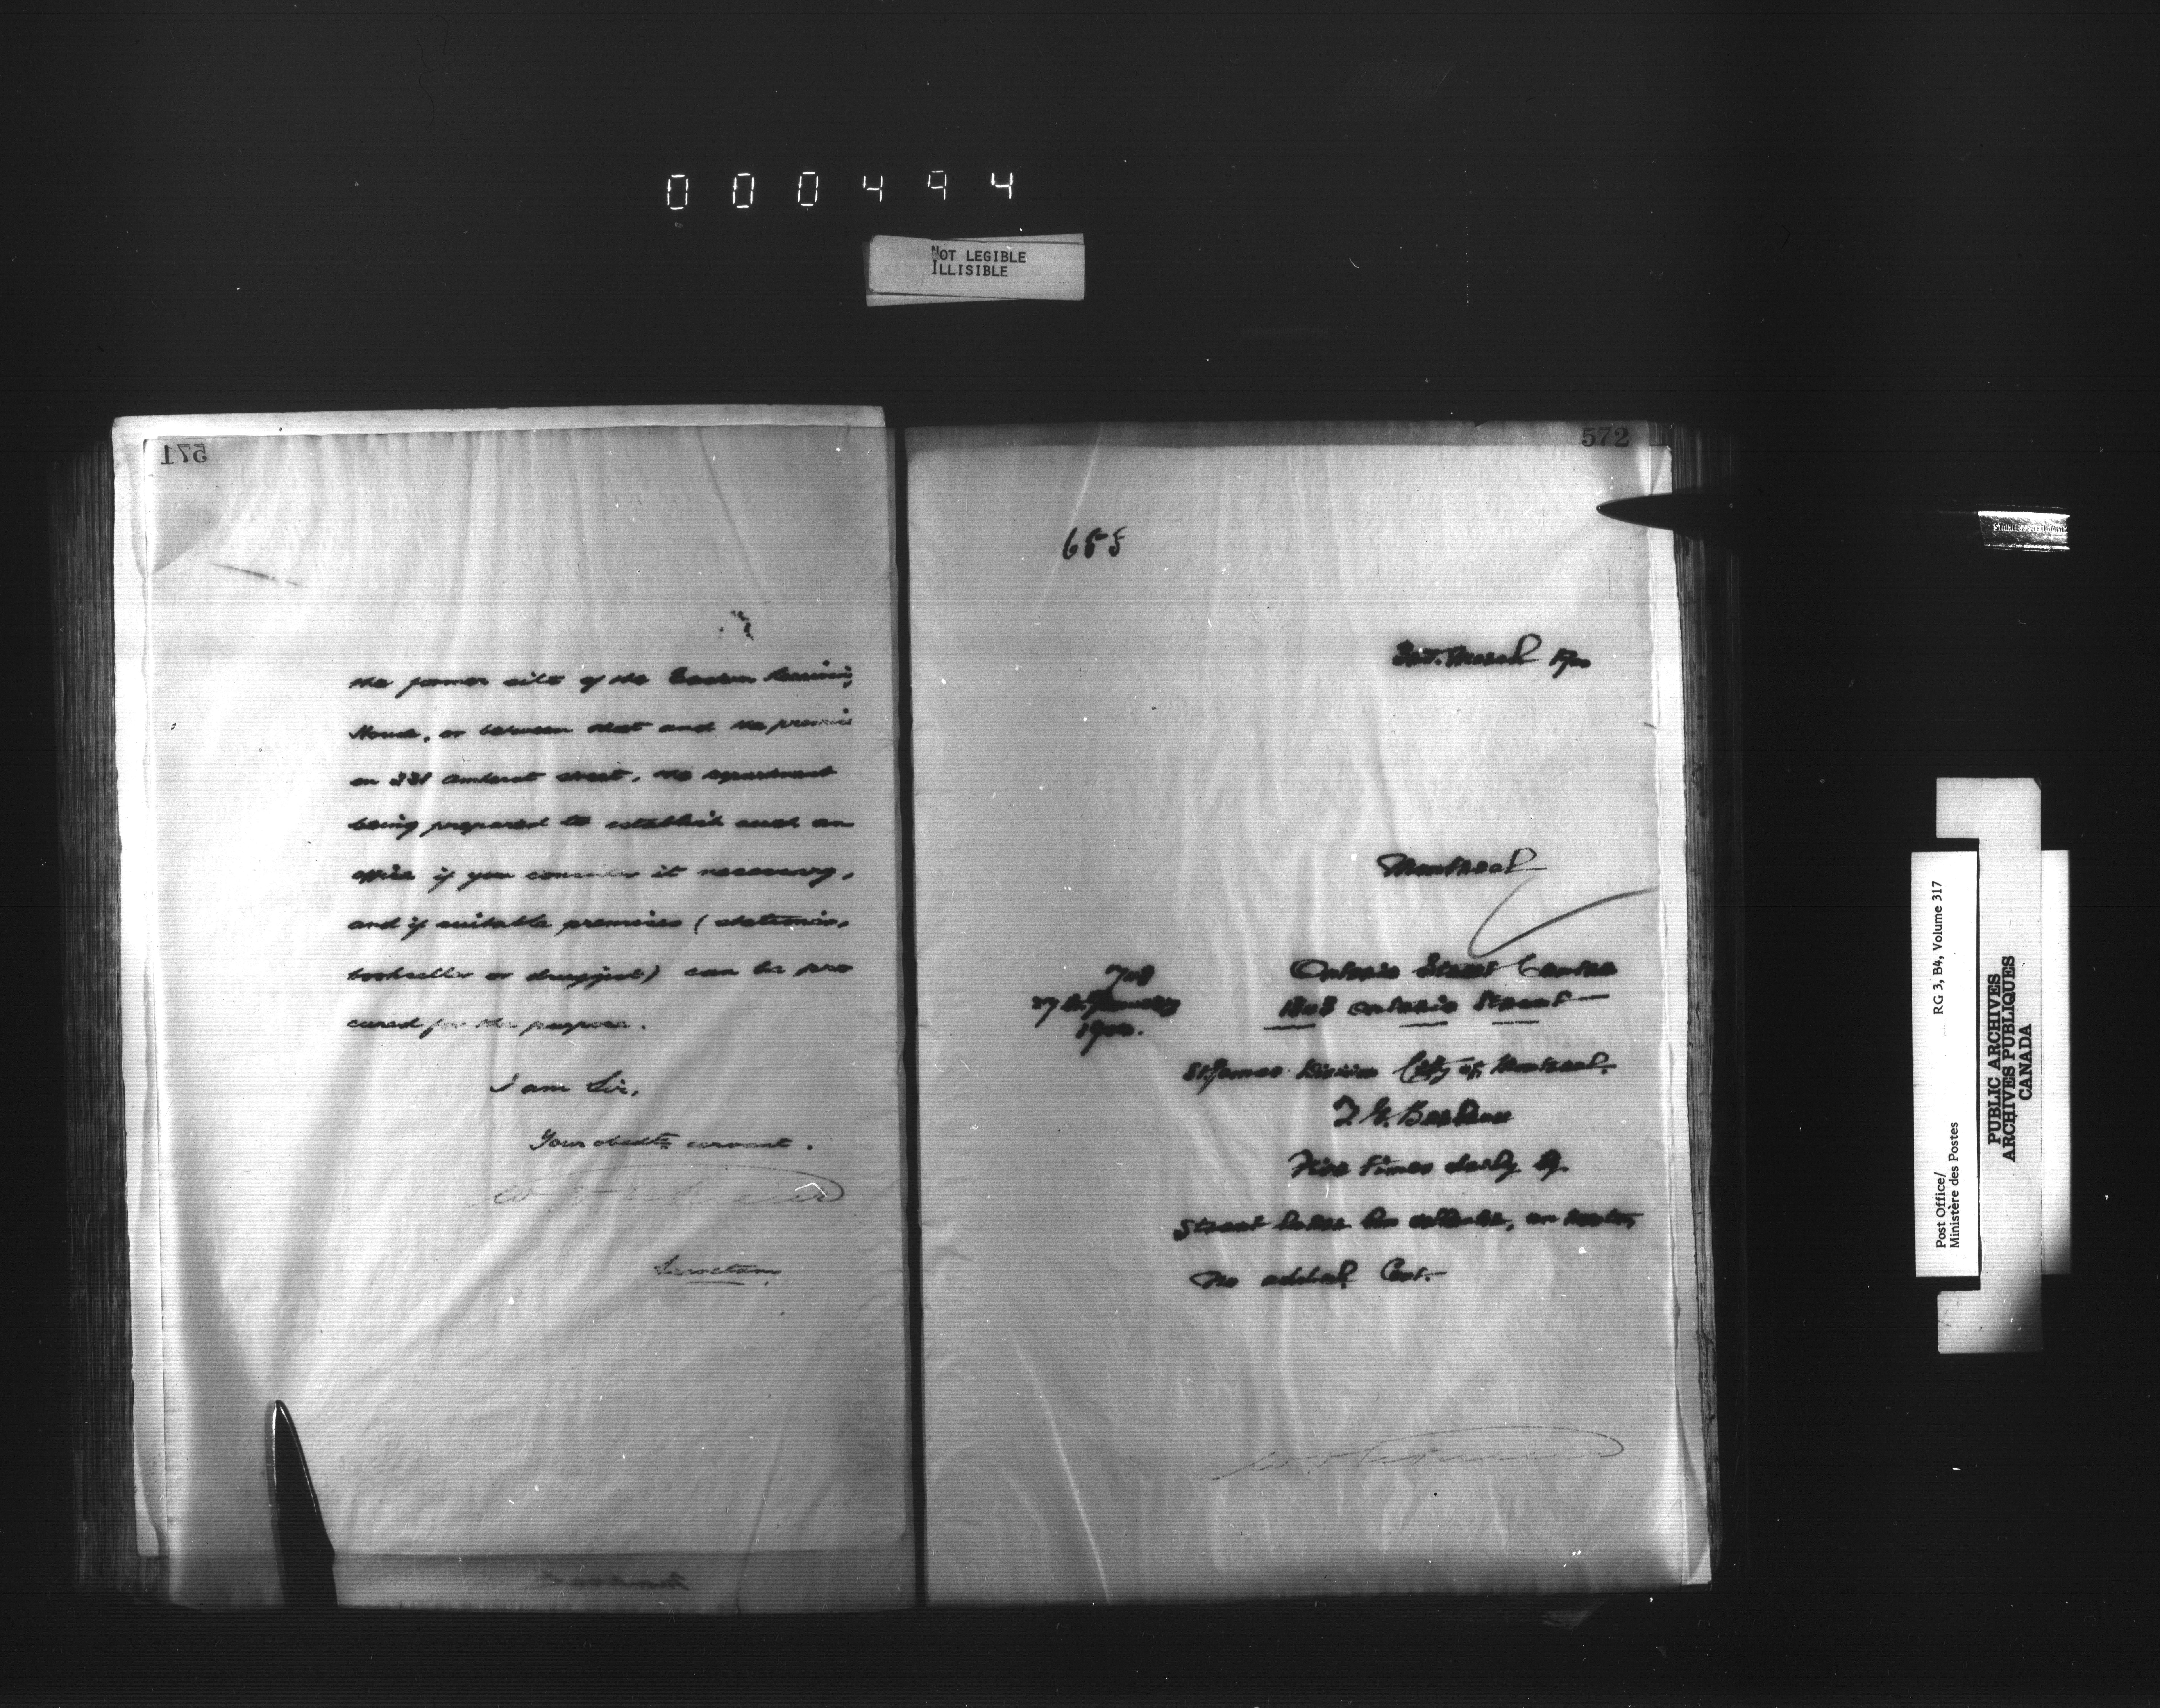 000494
NOT LEGIBLE
ILLISIBLE
571
the former site of the Eastern Receiving
House, or between that and the premises
on 331 Amherst street, the department
being prepared to establish such an
office if you consider it necessary,
and if suitable premises (stationer,
bookseller or druggist) can be pro
cured for the purpose.
I am Sir,
Your obedt. servant.
Secretary
572
655
March 1900
Montreal
Ontario Street Centre
27th January
1808 Ontario Street
1900.
St. James Division City of Montreal.
Five times daily by
Street
No addnal Cost.
Post Office/
Ministère des Postes
RG 3, B4, Volume 317
PUBLIC ARCHIVES
ARCHIVES PUBLIQUES
CANADA